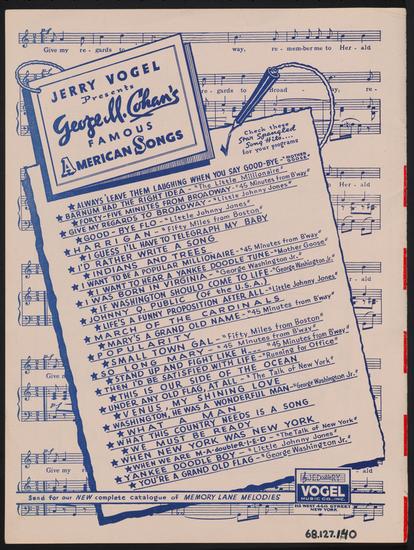 Give my re - gards to
way, re - mem-ber me to Her - ald
JERRY VOGEL
Presents
George M. Cohan's
FAMOUS
AMERICAN SONGS
Check these
Star Spangled
Song Hits....
for your programs
★ ALWAYS LEAVE THEM LAUGHING WHEN YOU SAY GOOD-BYE -
★ BARNUM HAD THE RIGHT IDEA - "The Little Millionaire"
★ FORTY-FIVE MINUTES FROM BROADWAY - "45 Minutes from B'way"
★ GIVE MY REGARDS TO BROADWAY - "Little Johnny Jones"
★ GOOD-BYE FLO - "Little Johnny Jones"
★ HARRIGAN - "Fifty Miles from Boston"
★ I GUESS I'LL HAVE TO TELEGRAPH MY BABY
★ I'D RATHER WRITE A SONG
★ INDIANS AND TREES
★ I WANT TO BE A POPULAR MILLIONAIRE - "45 Minutes from B'way"
★ I WANT TO HEAR A YANKEE DOODLE TUNE - "Mother Goose"
★ I WAS BORN IN VIRGINIA - "George Washington Jr."
★ IF WASHINGTON SHOULD COME TO LIFE - "George Washington Jr."
★ JOHNNY Q. PUBLIC (Of the U.S.A.)
★ LIFE'S A FUNNY PROPOSITION AFTER ALL - "Little Johnny Jones"
★ MARCH OF THE CARDINALS
★ MARY'S A GRAND OLD NAME - "45 Minutes from B'way"
★ POPULARITY
★ SMALL TOWN GAL - "Fifty Miles from Boston"
★ SO LONG MARY - "45 Minutes from B'way"
★ STAND UP AND FIGHT LIKE H... - "45 Minutes from B'way"
★ THEN I'D BE SATISFIED WITH LIFE - "Running for Office"
★ THIS IS OUR SIDE OF THE OCEAN
★ UNDER ANY OLD FLAG, AT ALL - "The Talk of New York"
★ VENUS, MY SHINING LOVE
★ WASHINGTON, HE WAS A WONDERFUL MAN - "George Washington Jr."
★ WHAT A MAN
★ WHAT THIS COUNTRY NEEDS IS A SONG
★ WE MUST BE READY
★ WHEN NEW YORK WAS NEW YORK
★ WHEN WE ARE M-A-double R-I-E-D - "The Talk of New York"
★ YANKEE DOODLE BOY - "Little Johnny Jones"
★ YOU'RE A GRAND OLD FLAG - "George Washington Jr."
Send for our NEW complete catalogue of MEMORY LANE MELODIES
JERRY
VOGEL
MUSIC CO., INC.
112 WEST 44th STREET
NEW YORK
68.127.140